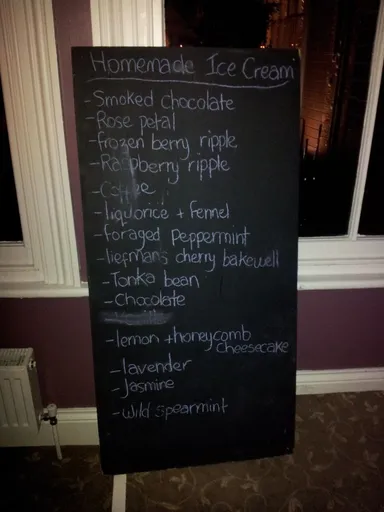 Homemade Ice Cream
- Smoked chocolate
- Rose petal
- frozen berry ripple
- Raspberry ripple
- Coffee
- liquorice + fennel
- foraged peppermint
- liefmans cherry bakewell
- Tonka bean
- Chocolate
- lemon + honeycomb
cheesecake
- lavender
- Jasmine
- wild spearmint